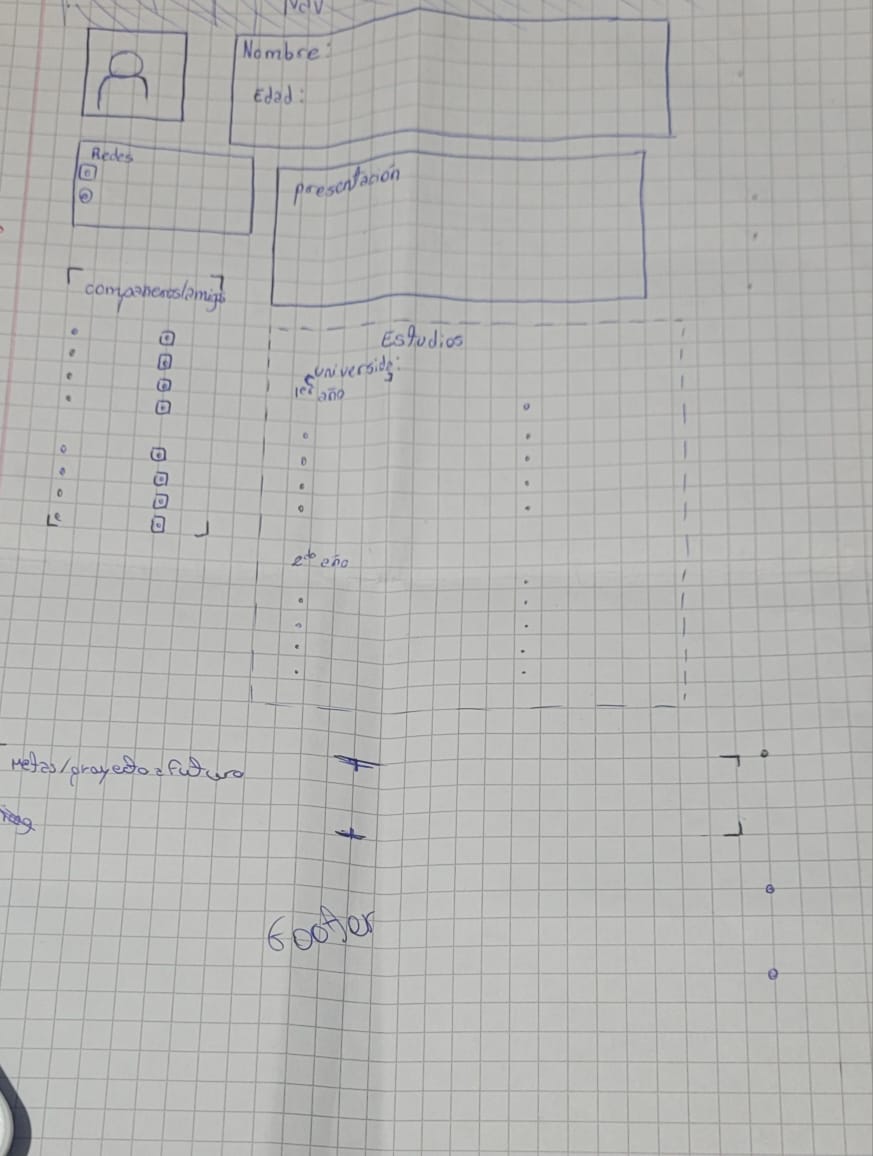 Nav
Nombre:
Edad:
Redes
presentación
compañeros/amigos
Estudios
universidad:
1er año
2do año
Metas/proyecto a futuro
Footer